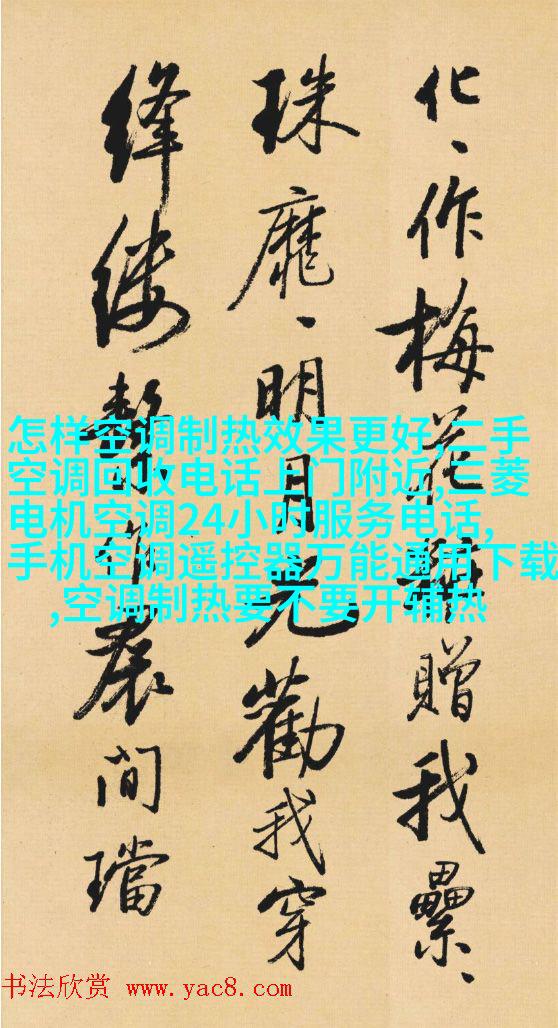 化、作梅花樹贈我纍、
珠靡、明月光勸我穿
絳縷繫作裠間璫
怎样空调制热效果更好,二手
空调回收电话上门附近,三菱
电机空调24小时服务电话,
手机空调遥控器万能通用下载
,空调制热要不要开辅热
书法欣赏 www.yac8.com